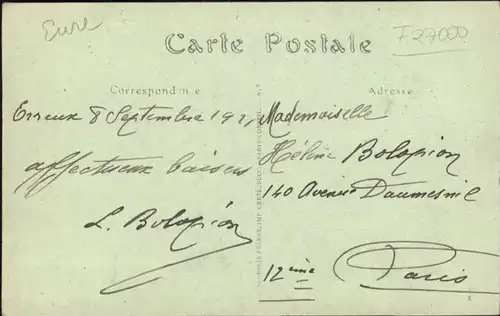 Eure
F27000
Carte Postale
Correspondance
Adresse
Evreux 8 Septembre
affectueux baisers
L. Bolopion
Mademoiselle
Hélène Bolopion
140 Avenue Daumesnil
12ème Paris